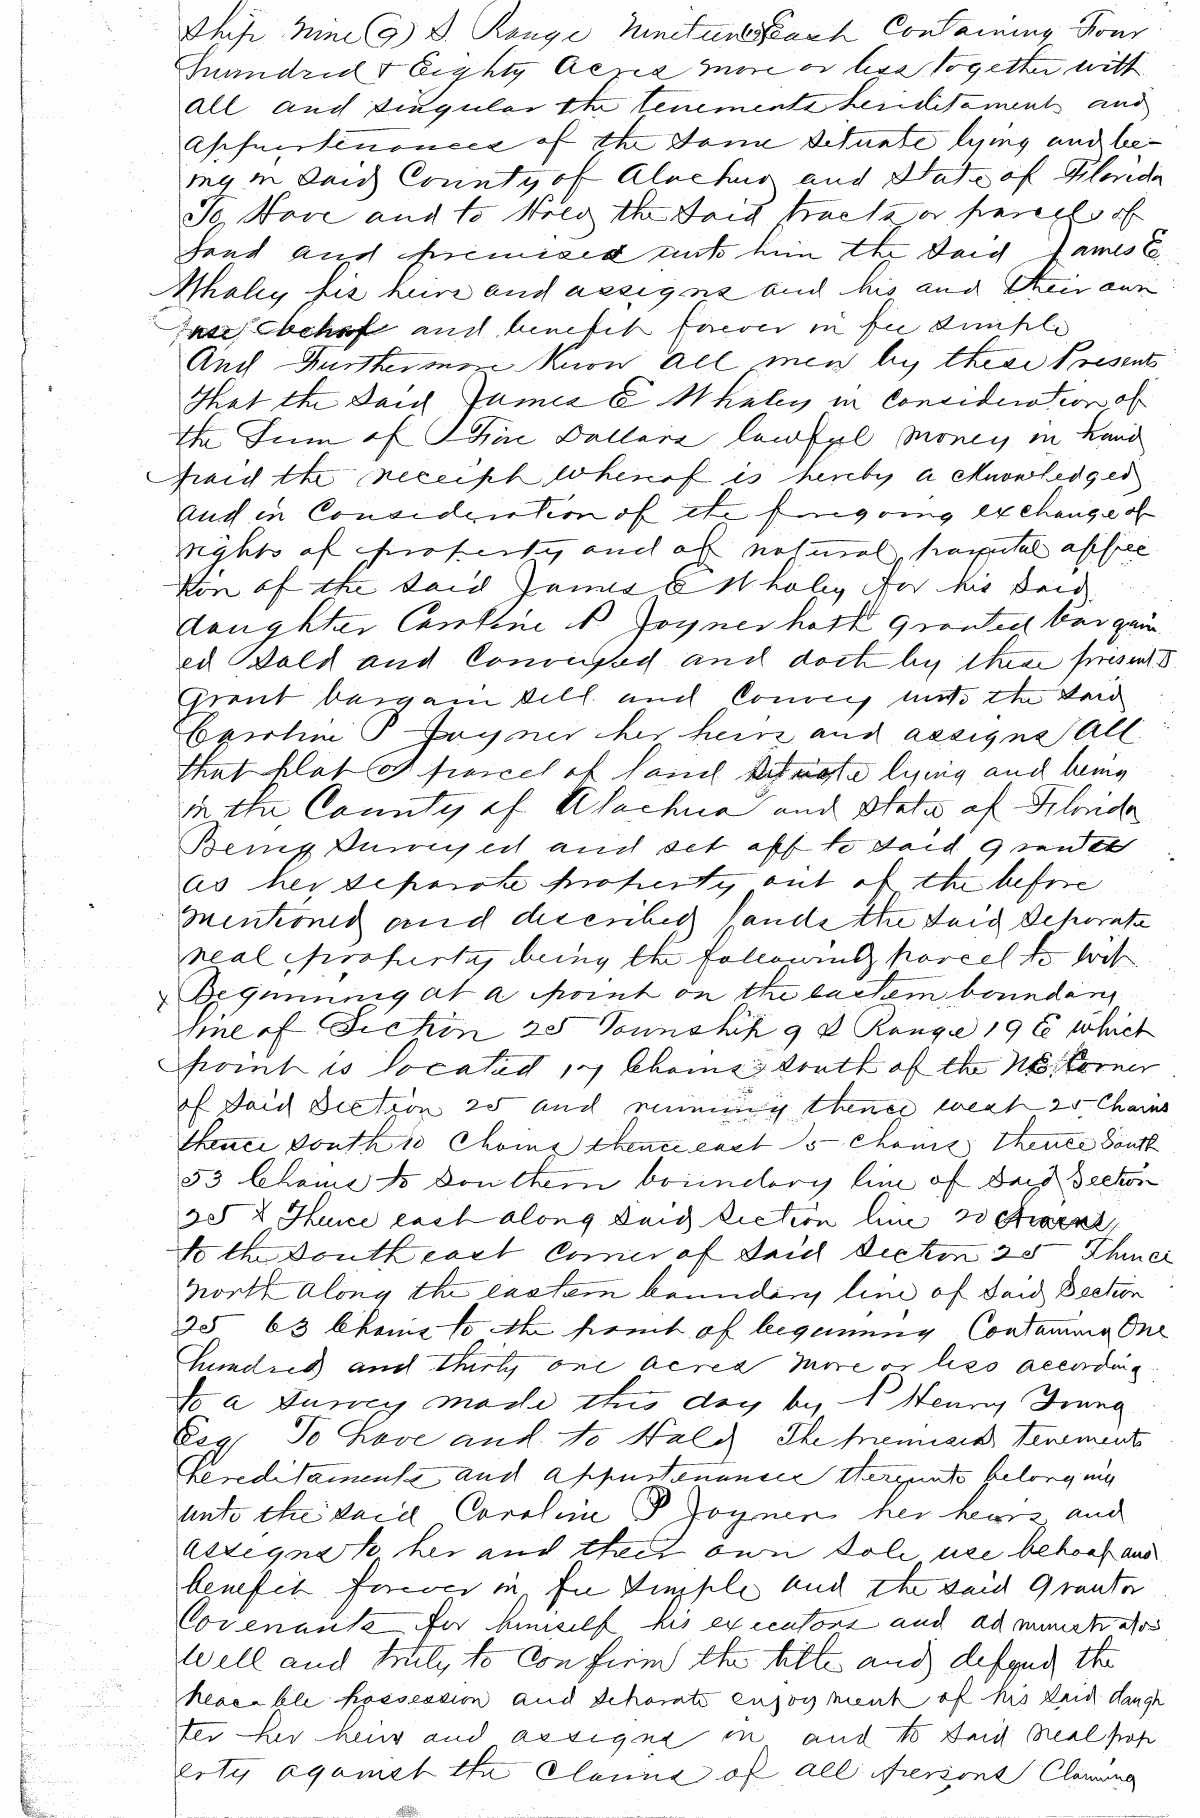 Ship Nine (9) S Range Nineteen East Containing Four
hundred & Eighty Acres more or less together with
all and singular the tenements hereditaments and
appurtenances of the same situate lying and be-
ing in said County of Alachua and State of Florida
To Have and to Hold the said tracts or parcels of
land and premises unto him the said James E
Whaley his heirs and assigns and his and their own
use behoof and benefit forever in fee simple
And Furthermore Know all men by these Presents
That the said James E Whaley in consideration of
the Sum of Five Dollars lawful money in hand
paid the receipt whereof is hereby acknowledged
and in Consideration of the foregoing exchange of
rights of property and of natural parental affec
tion of the said James E Whaley for his said
daughter Caroline P Joyner hath granted bargain
ed sold and Conveyed and doth by these presents
grant bargain sell and Convey unto the said
Caroline P Joyner her heirs and assigns All
that plat or parcel of land situate lying and being
in the County of Alachua and State of Florida
Being Surveyed and set off to said grantee
as her separate property out of the before
mentioned and described lands the said separate
real property being the following parcel to wit
Begunning at a point on the eastern boundary
line of Section 25 Township 9 S Range 19 E which
point is located 17 Chains south of the NE Corner
of said Section 25 and running thence west 25 Chains
thence south 10 Chains thence east 5 Chains thence South
53 Chains to Southern boundary line of said Section
25 & Thence east along said section line 20 chains
to the South east Corner of said Section 25 Thence
North along the eastern boundary line of said Section
25 63 Chains to the point of begunning Containing One
hundred and thirty one acres more or less according
to a survey made this day by P Henry Young
Esq To have and to Hold The premises tenements
hereditaments and appurtenances thereunto belonging
unto the said Caroline P Joyner her heirs and
assigns to her and their own sole use behoof and
benefit forever in fee simple and the said Grantor
Covenants for himself his executors and administrators
well and truly to Confirm the title and defend the
peaceable possession and separate enjoyment of his said daugh
ter her heirs and assigns in and to said real prop
erty against the claims of all persons Claiming